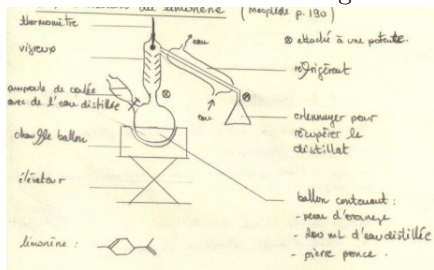 du limonène (Mesplède p. 190)
thermomètre
vigreux
ampoule de coulée
avec de l'eau distillée
chauffe ballon
élévateur
limonène :
eau
eau
⊗ attaché à une potence.
réfrigérant
erlenmeyer pour
récupérer le
distillat
ballon contenant :
- peau d'orange
- mL d'eau distillée
- pierre ponce.